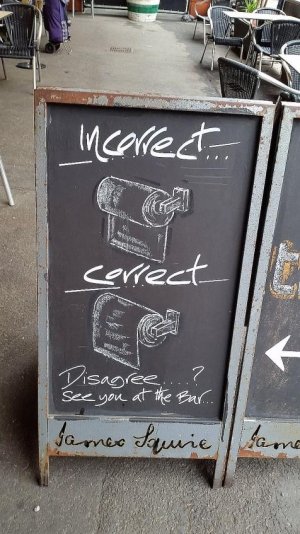 Incorrect...
correct
Disagree.....?
See you at the Bar..
James Squire